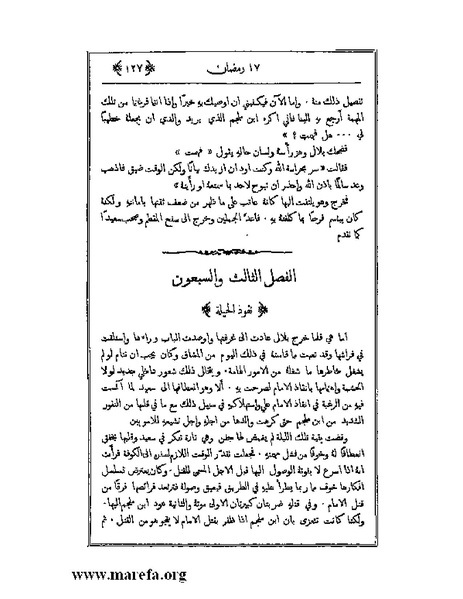 ١٧ رمضان
﴿ ١٢٧ ﴾
تفصيل ذلك منهُ . واما الآن فيكفيني ان اوصيك بهِ خيرًا واذا انتما قربتما من تلك
الجهة أرجع بهِ الينا فاني اكره ابن ملجم الذي يريد والدي ان يجعلهُ خطيبًا
لي ... هل فهمت ؟ »
فضحك بلال وهز رأسهُ ولسان حالهِ يقول « فهمت »
فقالت « سر بحراسة الله وكنت اود ان ازيدك بيانًا ولكن الوقت ضيق فاذهب
وعد سالمًا باذن الله واحذر ان تبوح لاحد بما سمعتهُ او رأيتهُ »
فخرج وهو يلتفت اليها كأنهُ عاتب على ما ظهر من ضعف ثقتها بامانتهِ ولكنهُ
كان يبتسم فرحًا بما كلفتهُ بهِ . فاتى الجملين وخرج الى سفح المقطم وصحب سعيدًا
كما تقدم
الفصل الثالث والسبعون
﴿ نفوذ الحيلة ﴾
اما هي فلما خرج بلال عادت الى غرفتها واوصدت الباب وراءها واستلقت
في فراشها وقد تعبت مما قاستهُ في ذلك اليوم من المشاق وكان يجب ان تنام لو لم
يشغل خاطرها ما شغلهُ من الامور الهامة . ويخالل ذلك شعور داخلي جديد لولا
الحشمة واهتمامها بانقاذ الامام لصرحت بهِ . ألا وهو انعطافها الى سعيد لما آنست
فيهِ من الرغبة في انقاذ الامام علي واستهلاكهِ في سبيل ذلك مع ما في قلبها من النفور
الشديد من ابن ملجم حتى كرهت والدها من اجلهِ واجل تشيعهِ للامويين
وقضت بقية تلك الليلة لم يغمض لها جفن وهي تارة تفكر في سعيد وقلبها يخفق
انعطافًا لهُ وخوفًا من فشل مهمتهِ . فجعلت تقدّر الوقت اللازم لسفره الى الكوفة فرأت
انهُ اذا اسرع لا يفوتهُ الوصول اليها قبل الاجل المسمى للقتل . وكان يعترض تسلسل
افكارها خوف ما ربما يطرأ عليهِ في الطريق فيعيق وصولهُ فترتعد فرائصها فرقًا من
قتل الامام . وفي قتلهِ ضربتان كبيرتان الاولى موتهُ والثانية عود ابن ملجم اليها .
ولكنها كانت تتعزى بان ابن ملجم اذا ظفر بقتل الامام لا ينجو هو من القتل . ثم
www.marefa.org